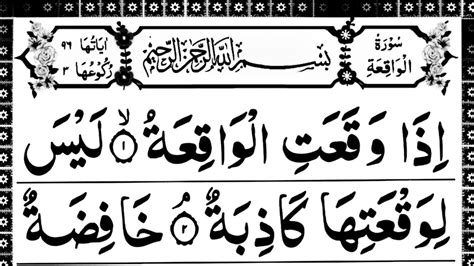 سُوْرَةُ الْوَاقِعَةِ
بِسْمِ اللّٰهِ الرَّحْمٰنِ الرَّحِيْمِ
اٰيَاتُهَا ٩٦
رُكُوْعُهَا ٣
اِذَا وَقَعَتِ الْوَاقِعَةُ ۙ﴿١﴾ لَيْسَ
لِوَقْعَتِهَا كَاذِبَةٌ ﴿٢﴾ خَافِضَةٌ